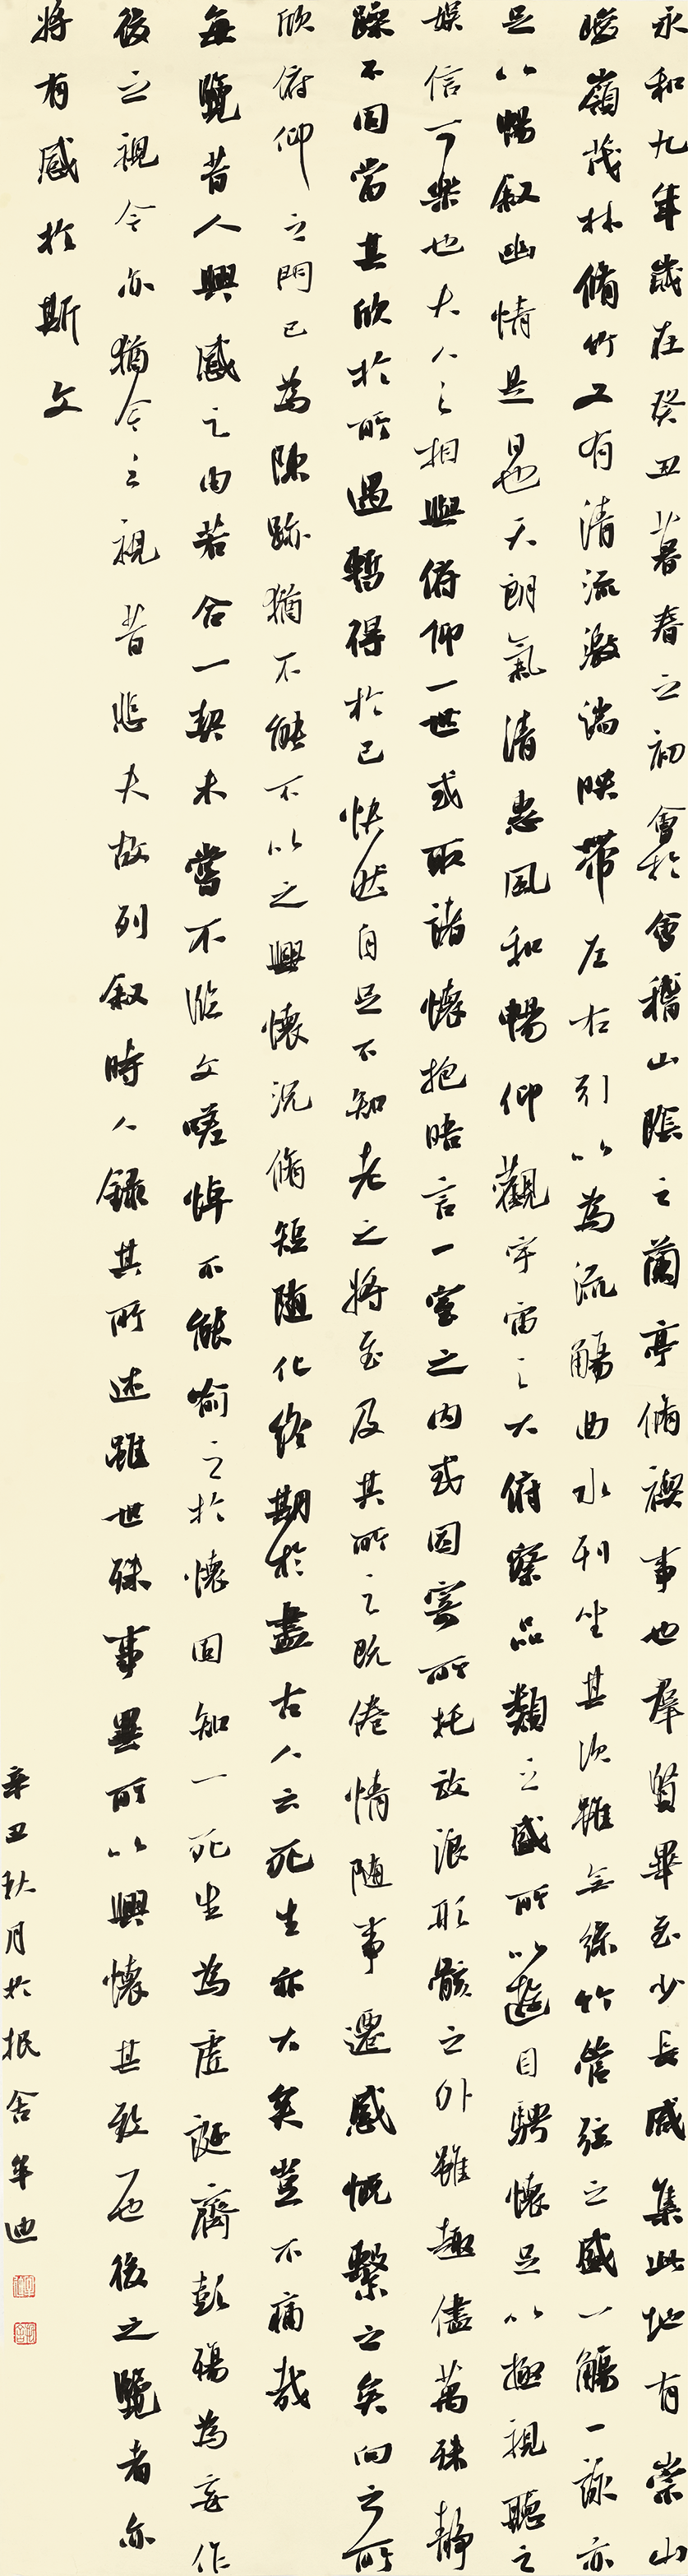 永和九年歲在癸丑暮春之初會於會稽山陰之蘭亭脩禊事也群賢畢至少長咸集此地有崇山
峻嶺茂林脩竹又有清流激湍映帶左右引以為流觴曲水列坐其次雖無絲竹管弦之盛一觴一詠亦
足以暢敘幽情是日也天朗氣清惠風和暢仰觀宇宙之大俯察品類之盛所以遊目騁懷足以極視聽之
娛信可樂也夫人之相與俯仰一世或取諸懷抱晤言一室之內或因寄所托放浪形骸之外雖趣儘萬殊靜
躁不同當其欣於所遇暫得於己快然自足不知老之將至及其所之既倦情隨事遷感慨繫之矣向之所
欣俯仰之間已為陳跡猶不能不以之興懷況脩短隨化終期於盡古人云死生亦大矣豈不痛哉
每覽昔人興感之由若合一契未嘗不臨文嗟悼不能喻之於懷固知一死生為虛誕齊彭殤為妄作
後之視今亦猶今之視昔悲夫故列敘時人錄其所述雖世殊事異所以興懷其致一也後之覽者亦
將有感於斯文
辛丑秋月於抿舍牟迪